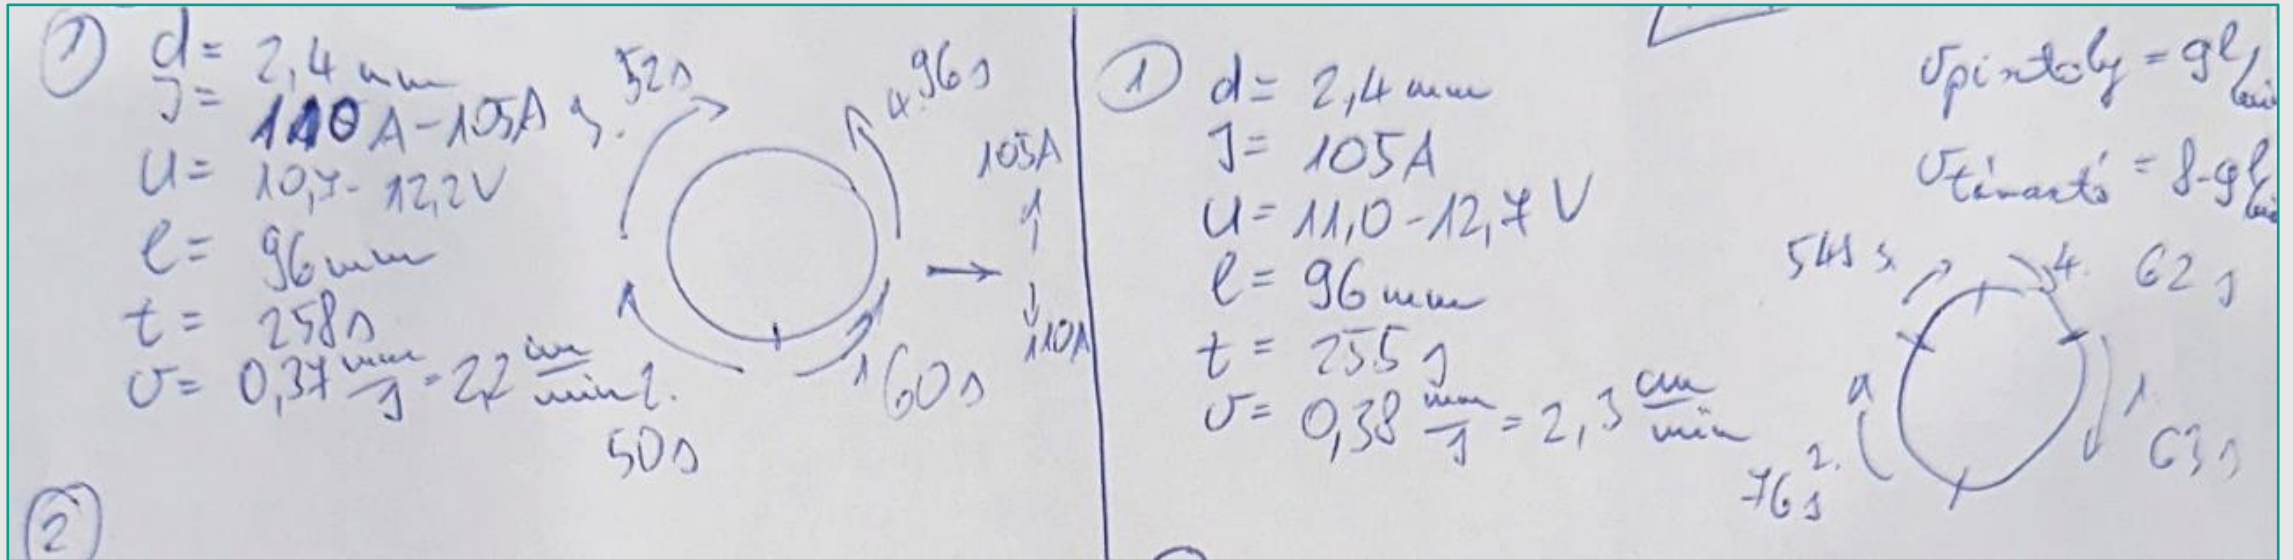 1
d = 2,4 mm
J = 110 A - 105A
U = 10,7 - 12,2V
l = 96 mm
t = 258 s
v = 0,37 mm/s = 2,2 cm/min
3. 52s
4. 96s
1 60s
2.
50s
105A
110A
2
1
d = 2,4 mm
J = 105A
U = 11,0 - 12,7 V
l = 96 mm
t = 255 s
v = 0,38 mm/s = 2,3 cm/min
vpisztoly = 9 l/min
3.
4. 62 s
1 63s
2.
76s